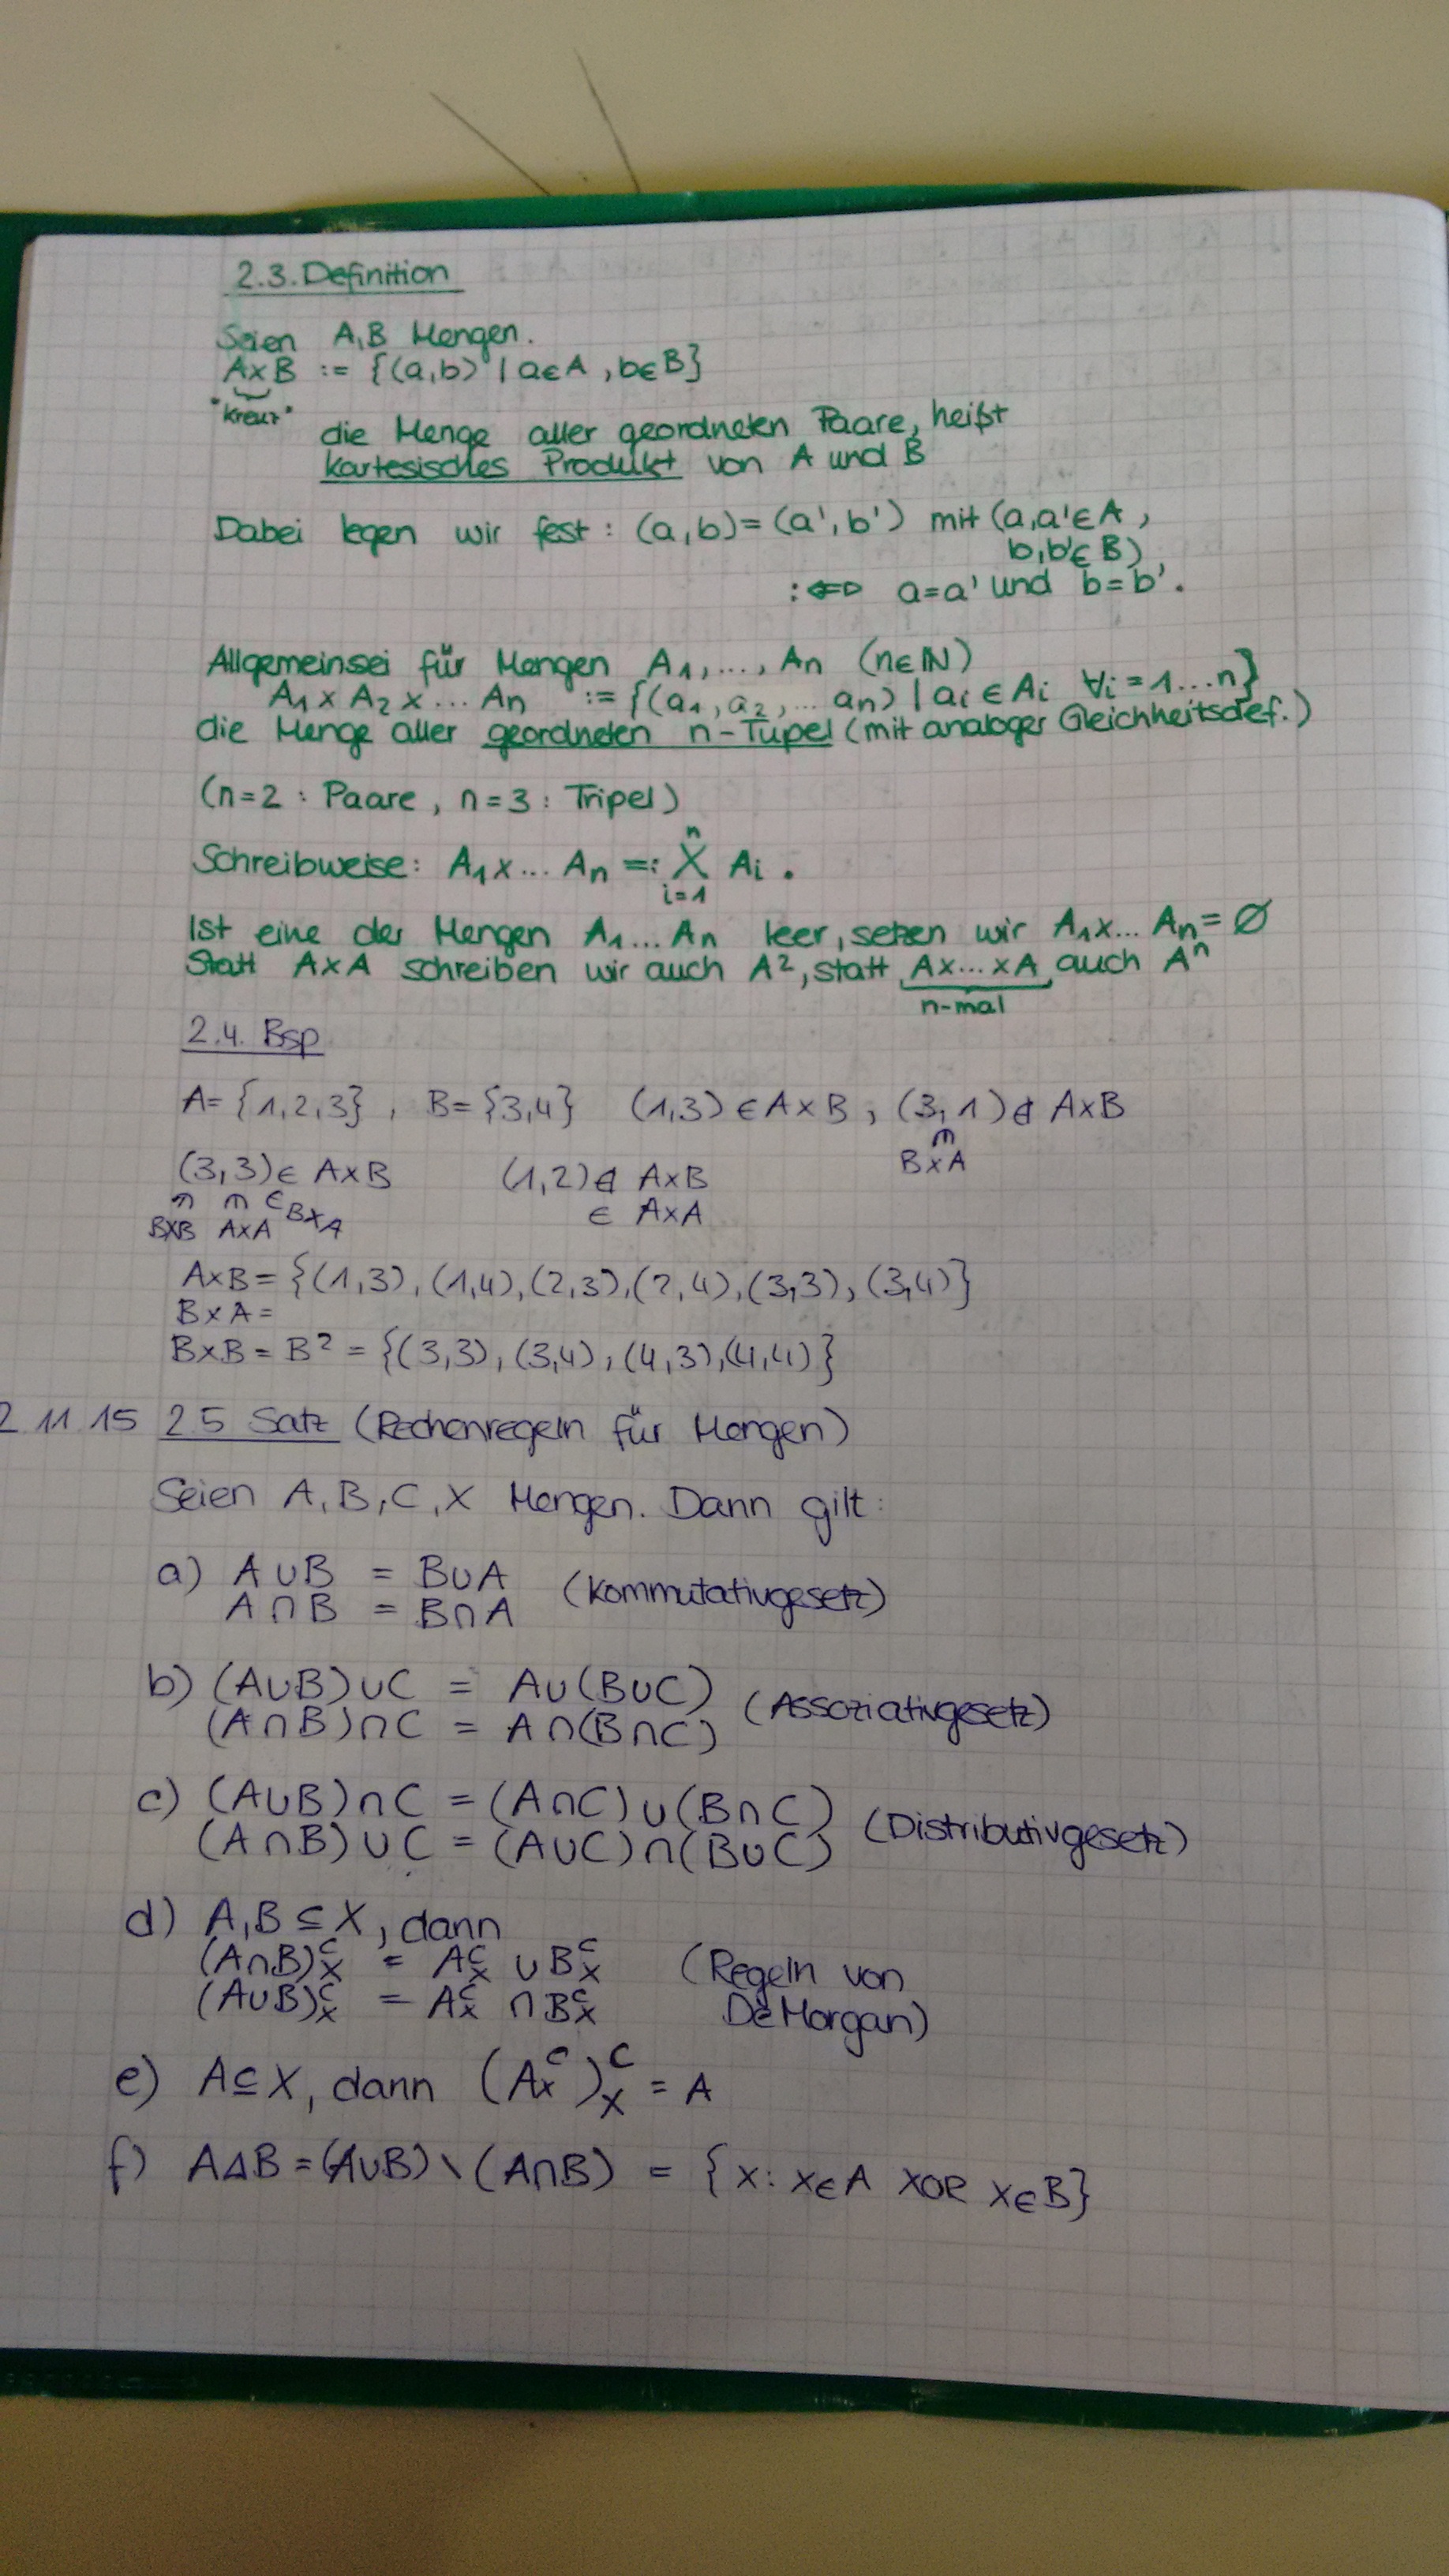 2.3. Definition
Seien A,B Mengen.
A×B := {(a,b) | a∈A, b∈B}
"Kreuz"
die Menge aller geordneten Paare, heißt
kartesisches Produkt von A und B
Dabei legen wir fest: (a,b)=(a',b') mit (a,a'∈A,
b,b'∈B)
:⇔ a=a' und b=b'.
Allgemein sei für Mengen A₁,..., An (n∈ℕ)
A₁ × A₂ × ... An := {(a₁, a₂, ... an) | ai ∈ Ai ∀i = 1...n}
die Menge aller geordneten n-Tupel (mit analoger Gleichheitsdef.)
(n=2 : Paare, n=3 : Tripel)
n
Schreibweise: A₁ x ... An =: X Ai.
i=1
Ist eine der Mengen A₁...An leer, setzen wir A₁x... An = ∅
Statt A×A schreiben wir auch A², statt A×...×A auch Aⁿ
n-mal
2.4. Bsp
A= {1,2,3}, B= {3,4} (1,3) ∈ A×B, (3,1) ∉ A×B
∈
B×A
(3,3) ∈ A×B (1,2) ∉ A×B
∈ ∈ ∈ B×A ∈ A×A
B×B A×A
A×B = {(1,3), (1,4), (2,3), (2,4), (3,3), (3,4)}
B×A =
B×B = B² = {(3,3), (3,4), (4,3), (4,4)}
2 11 15 2.5 Satz (Rechenregeln für Mengen)
Seien A, B, C, X Mengen. Dann gilt:
a) A ∪ B = B ∪ A
(Kommutativgesetz)
A ∩ B = B ∩ A
b) (A∪B)∪C = A∪(B∪C)
(Assoziativgesetz)
(A∩B)∩C = A∩(B∩C)
c) (A∪B)∩C = (A∩C)∪(B∩C)
(Distributivgesetz)
(A∩B)∪C = (A∪C)∩(B∪C)
d) A,B ⊆ X, dann
(A∩B)ᶜₓ = Aᶜₓ ∪ Bᶜₓ (Regeln von
(A∪B)ᶜₓ = Aᶜₓ ∩ Bᶜₓ De Morgan)
e) A⊆X, dann (Aᶜₓ)ᶜₓ = A
f) A∆B = (A∪B) \ (A∩B) = {x: x∈A XOR x∈B}